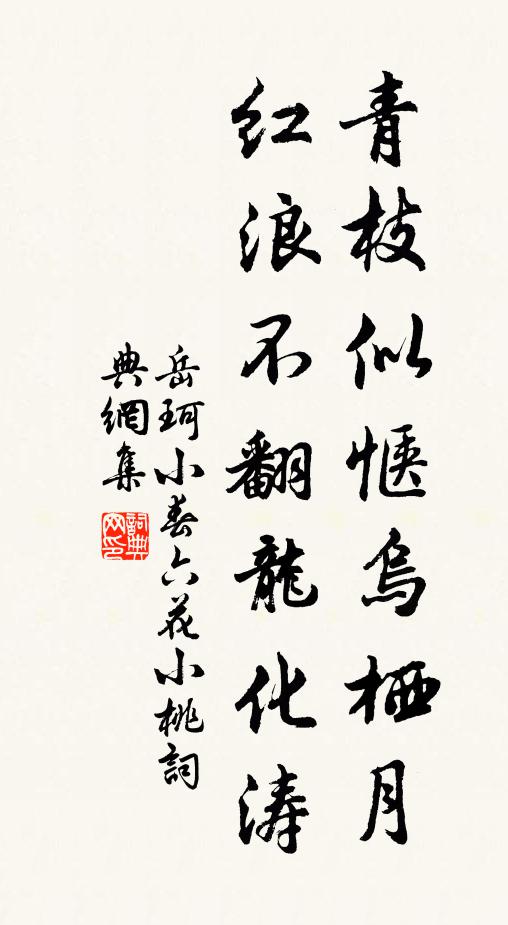 青枝似愜烏栖月
紅浪不翻龍化濤
岳珂小春六花小桃詞
典網集
詞典網印